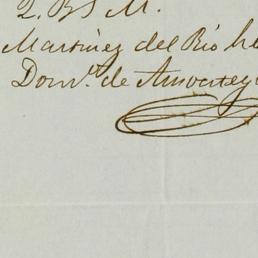 Q. B S M.
Martinez del Rio he
Domo. de Ansoategui